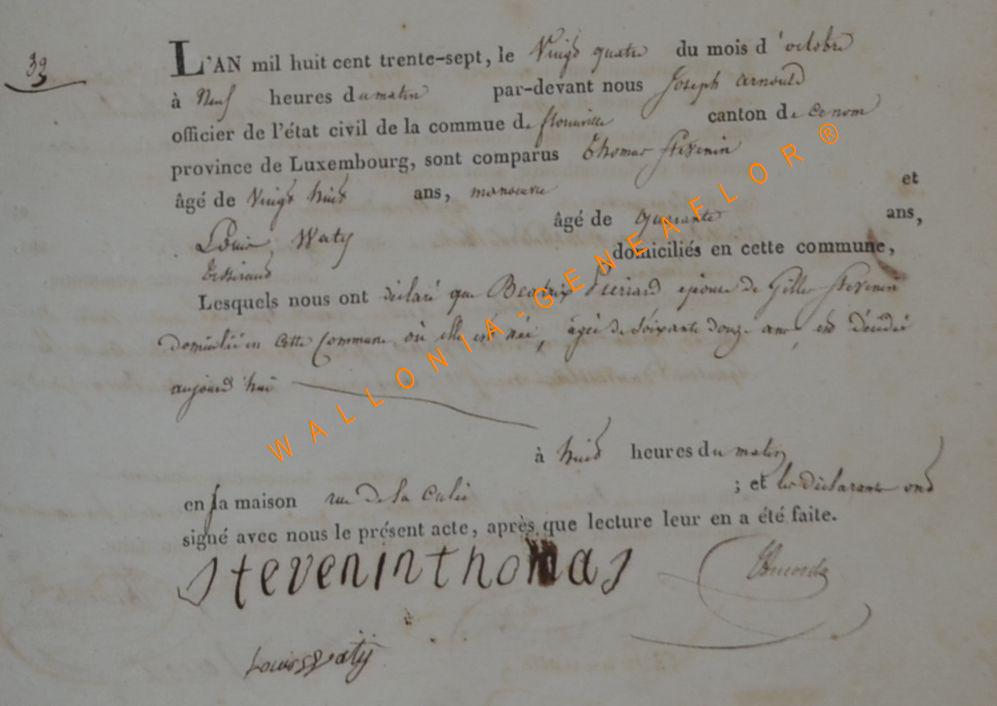 39
L'AN mil huit cent trente-sept, le Vingt quatre du mois d'octobre
à Neuf heures du matin par-devant nous Joseph Arnould
officier de l'état civil de la commue de florenville canton de ce nom
province de Luxembourg, sont comparus Thomas Stevenin
âgé de Vingt huit ans, manoeuvre et
Louis Waty âgé de quarante ans,
Tisserand domiciliés en cette commune,
Lesquels nous ont déclaré que Beatrix Pierrard epouse de Gilles Stevenin
domiciliée en cette Commune où elle est née, âgée de Soixante douze ans, est décédée
aujourd'hui
à huit heures du matin
en sa maison rue de la ; et les déclarants ont
signé avec nous le présent acte, après que lecture leur en a été faite.
stevenin thomas
Louis Watÿ
WALLONIA-GENEAFLOR®